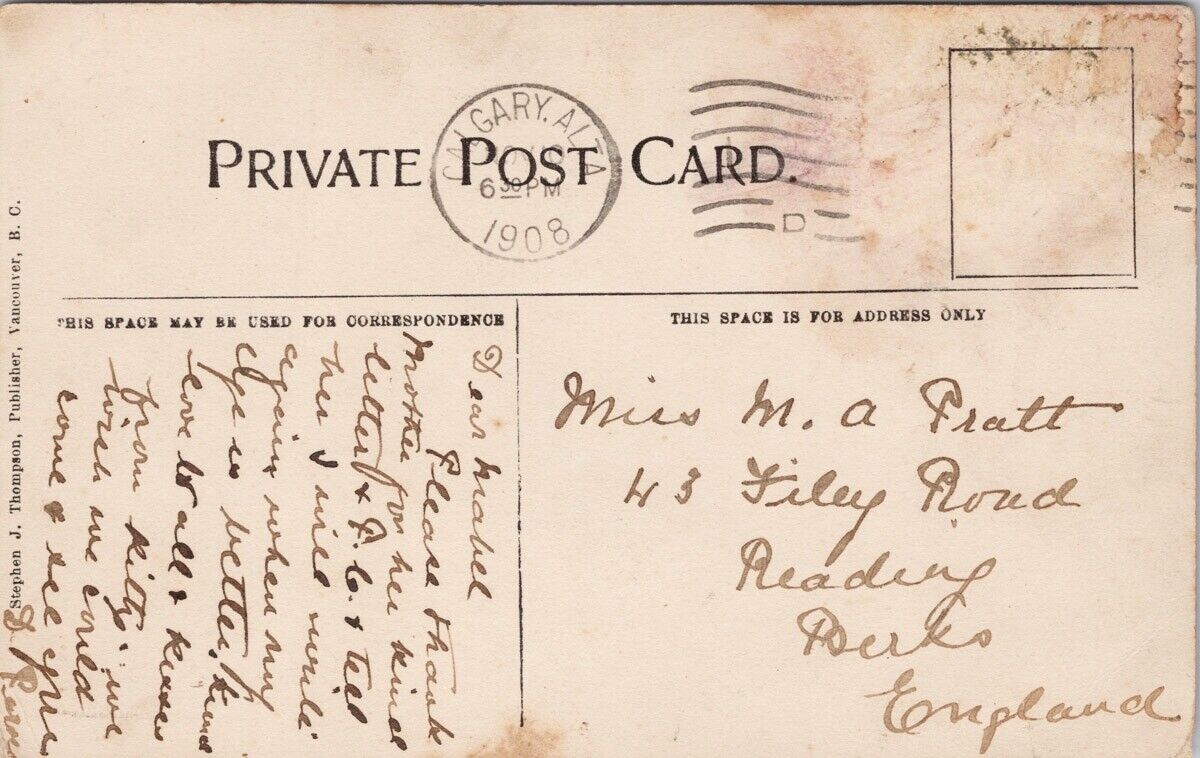 PRIVATE POST CARD.
CALGARY. ALTA
6 30 PM
1908
D
THIS SPACE MAY BE USED FOR CORRESPONDENCE
THIS SPACE IS FOR ADDRESS ONLY
Stephen J. Thompson, Publisher, Vancouver, B. C.
Dear Mabel
Please thank
Mother for her kind
letter & P. C. & tell
her I will write
again when my
eye is better, kind
love to all & kisses
from Kitty. we
wish we could
come & see you
Miss M. A Pratt
43 Filey Road
Reading
Berks
England